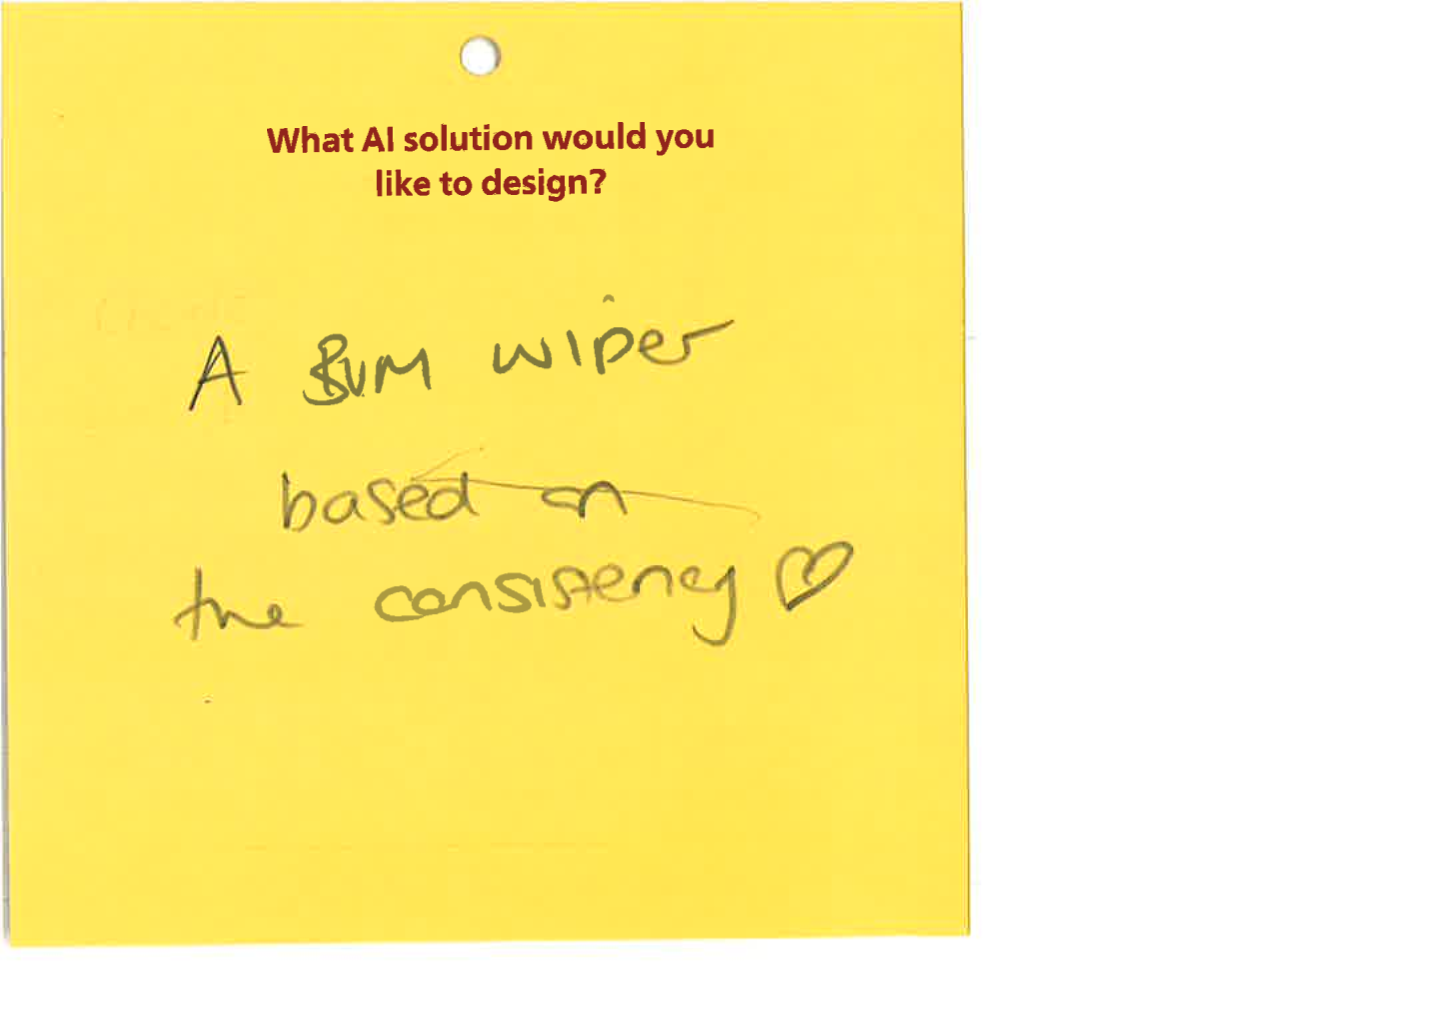 What AI solution would you
like to design?
A BUM wiper
based on
the consistency ♡